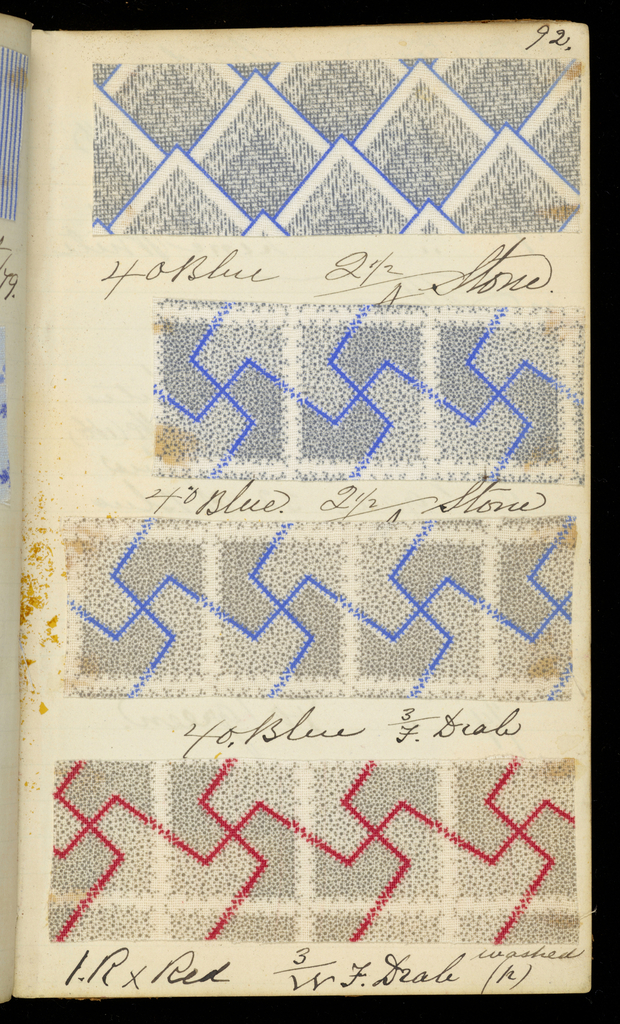 92.
40 Blue 2 1/2 Stone.
40 Blue. 2 1/2 Stone
40. Blue 3/F. Drab
1. R x Red 3/W F. Drab washed (h)
79.